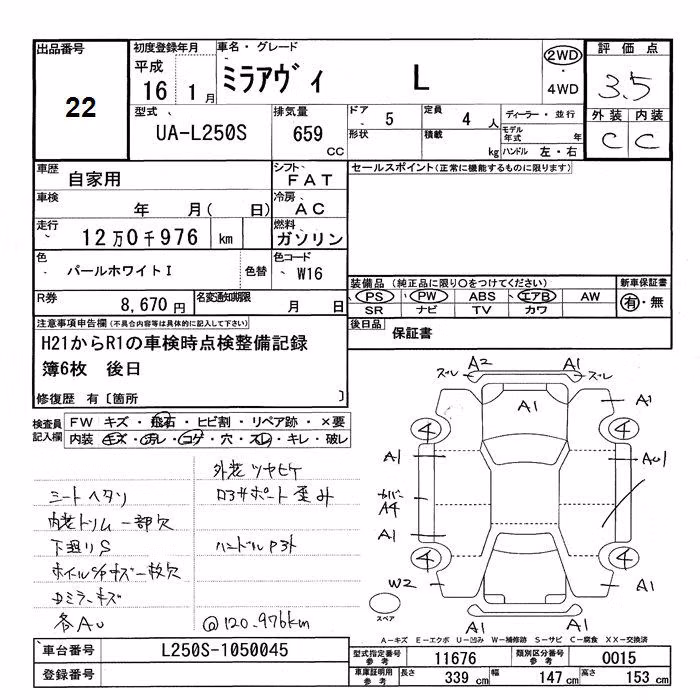 出品番号 初度登録年月 車名・グレード 評価点
22 平成 16 1月 ミラアヴィ L 2WD ・ 4WD 3.5
型式 排気量 ドア 5 定員 4人 ディーラー・並行 外装 内装
UA-L250S 659 CC 形状 積載 kg モデル年式 年 ハンドル 左・右 C C
車歴 自家用 シフト FAT セールスポイント(正常に機能するものに限ります)
車検 年 月( 日) 冷房 AC
走行 12万0千976 km 燃料 ガソリン
色 パールホワイトI 色替 色コード W16
装備品 (純正品に限り○をつけてください) 新車保証書
PS PW ABS エアB AW 有・無
SR ナビ TV カワ
R券 8,670円 名変通知期限 月 日
後日品 保証書
注意事項申告欄(不具合内容等は具体的に記入して下さい)
H21からR1の車検時点検整備記録
簿6枚 後日
修復歴 有〔箇所 〕
検査員記入欄 FW キズ・飛石・ヒビ割・リペア跡・×要
内装 キズ・汚レ・コゲ・穴・スレ・キレ・破レ
外装ツヤヒケ
シートヘタリ ロアサポート歪み
内装トリム一部欠
下廻りS ハンドルP外
ホイルC/Pキズ一枚欠
Dミラーキズ
各AU @120.976km
ズレ A2 A1 ズレ
A1 A1
4 4
A1 A1
カバー A4
A1
4 4
W2 A1
スペア
A1 A1
A－キズ E－エクボ U－凹み W－補修跡 S－サビ C－腐食 XX－交換済
車台番号 L250S-1050045 型式指定番号 参考 11676 類別区分番号 参考 0015
登録番号 車庫証明用 参考 長さ 339 cm 幅 147 cm 高さ 153 cm